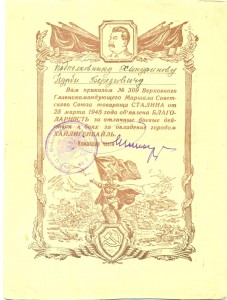 Вам приказом № 309 Верховного
Главнокомандующего Маршала Совет-
ского Союза товарища СТАЛИНА от
25 марта 1945 года объявлена БЛАГО-
ДАРНОСТЬ за отличные боевые дей-
ствия в боях за овладение городом
ХАЙЛИГЕНБАЙЛЬ.
Командир части